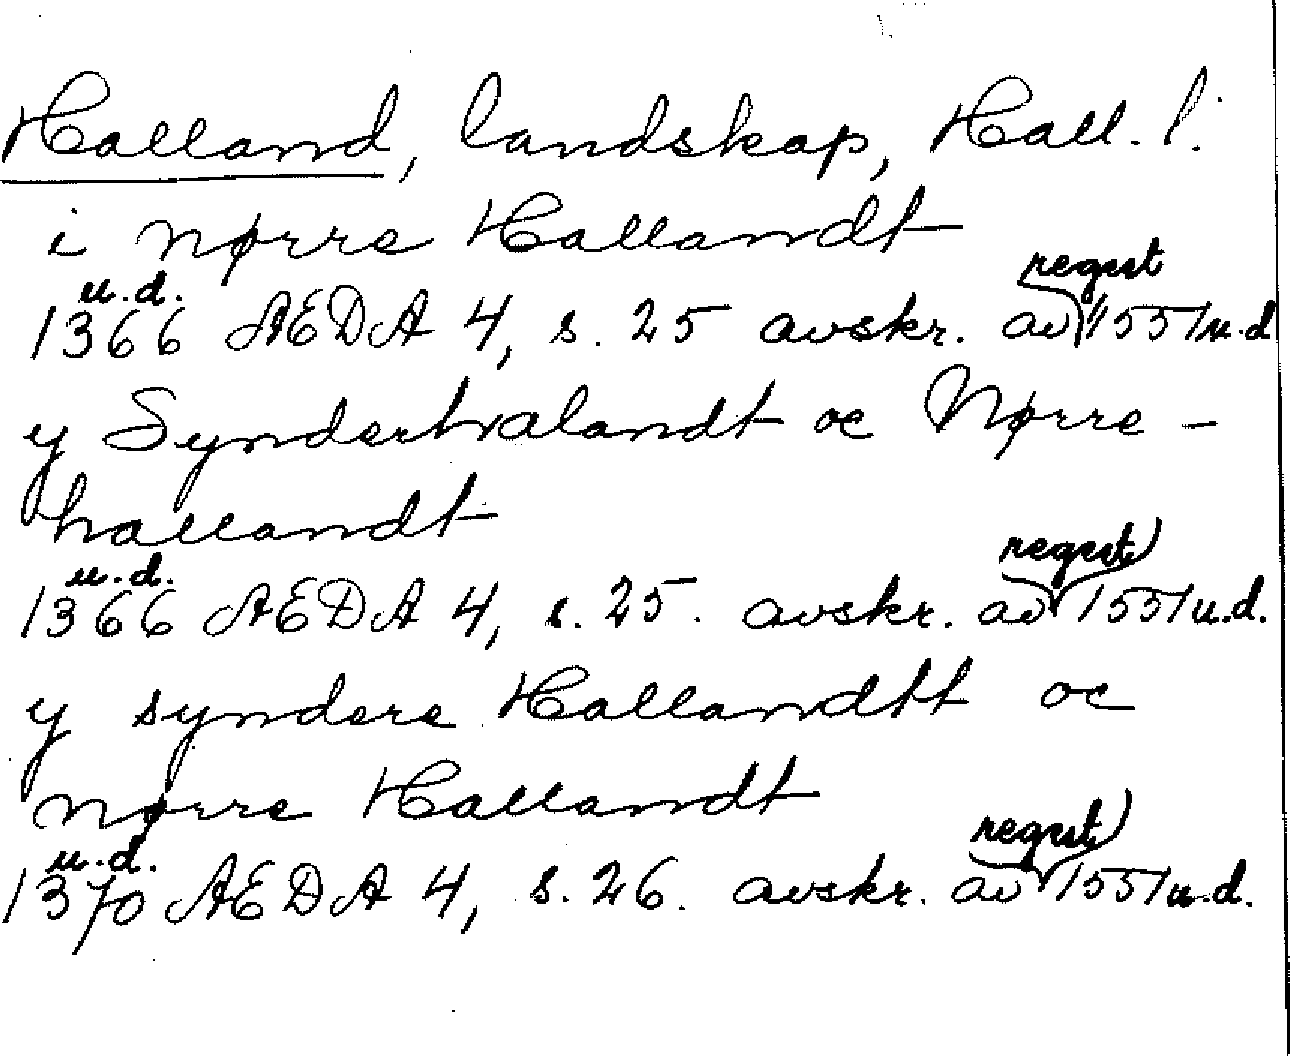 Halland, landskap, Hall. l.
i nørre Hallandt
1366 u.d. AEDA 4, s. 25 avskr. av regest 1551 u.d
y Synderhalandt oc Nørre-
hallandt
1366 u.d. AEDA 4, s. 25. avskr. av regest 1551 u.d.
y syndere Hallandtt oc
nørre Hallandt
1370 u.d. AEDA 4, s. 26. avskr. av regest 1551 u.d.